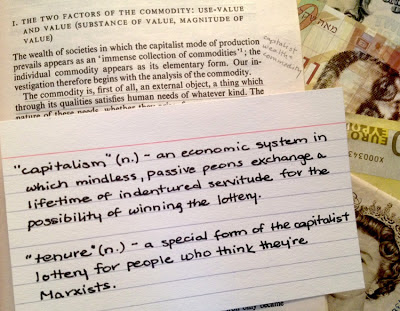 1. THE TWO FACTORS OF THE COMMODITY: USE-VALUE
AND VALUE (SUBSTANCE OF VALUE, MAGNITUDE OF
VALUE)
The wealth of societies in which the capitalist mode of production
prevails appears as an 'immense collection of commodities'¹; the
individual commodity appears as its elementary form. Our in-
vestigation therefore begins with the analysis of the commodity.
The commodity is, first of all, an external object, a thing which
through its qualities satisfies human needs of whatever kind. The
nature of these needs, whether they
capitalist
wealth =
commodity
"capitalism" (n.) - an economic system in
which mindless, passive peons exchange a
lifetime of indentured servitude for the
possibility of winning the lottery.
"tenure" (n.) - a special form of the capitalist
lottery for people who think they're
Marxists.